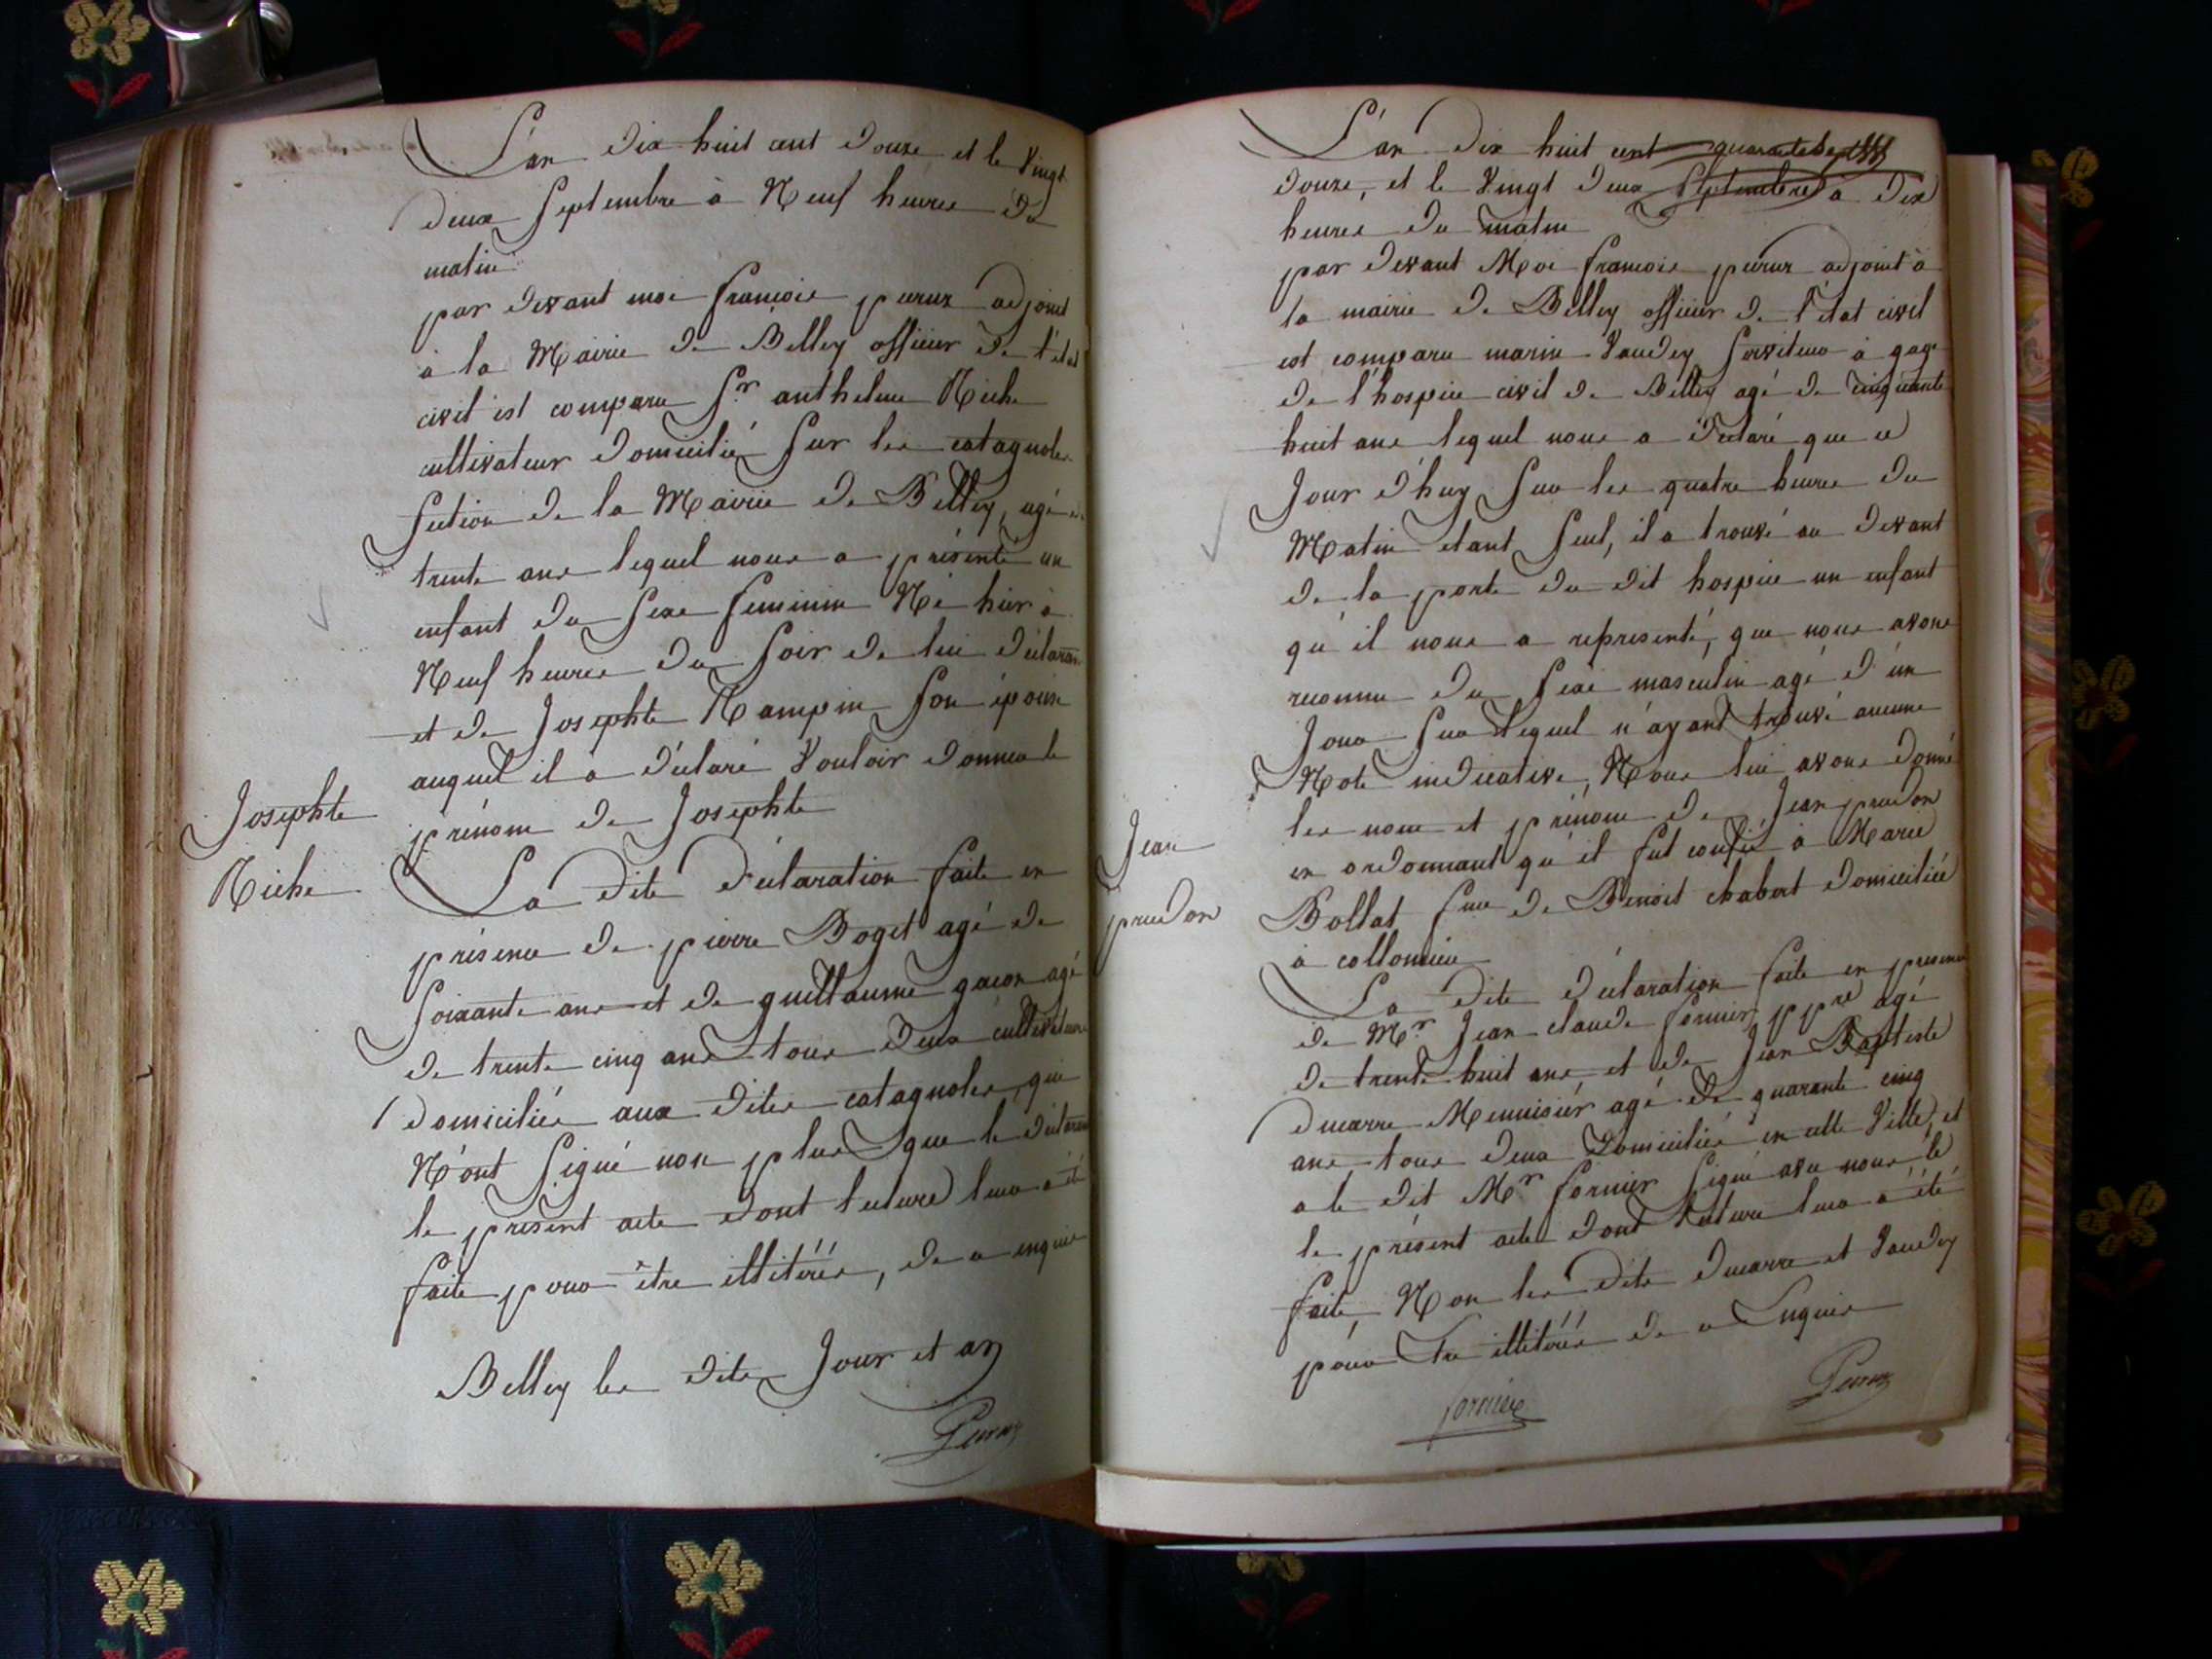 L'an dix huit cent douze et le vingt
deux Septembre à Neuf heures du
matin
par devant moi francois peruz adjoint
à la Mairie de Belley officier de l'état
civil est comparu Sr. anthelme Riche
cultivateur domicilié Sur les catagnoles
Section de la Mairie de Belley, agé de
trente ans lequel nous a présenté un
enfant du Sexe feminin Né hier à
Neuf heures du Soir de lui déclarant
et de Josephte Rampin Son épouse
auquel il a déclaré Vouloir donner le
prénom de Josephte
Josephte
Riche
La dite déclaration faite en
présence de pierre Boget agé de
Soixante ans et de guillaume gacon agé
de trente cinq ans tous deux cultivateurs
domiciliés aux dites catagnoles, qui
N'ont Signé non plus que le déclarant
le présent acte dont lecture leur a été
faite pour être illitérés, de ce enquis
Belley les dits Jour et an
L'an dix huit cent
douze, et le Vingt deux Septembre à dix
heures du matin
par devant Moi francois peruz adjoint à
la mairie de Belley officier de l'état civil
est comparu marin Vaudey Serviteur à gage
de l'hospice civil de Belley agé de cinquante
huit ans lequel nous a déclaré que ce
Jour d'huy Sur les quatre heures du
Matin etant Seul, il a trouvé au devant
de la porte du dit hospice un enfant
qu'il nous a représenté, que nous avons
reconnu du Sexe masculin agé d'un
Jour Sur lequel n'ayant trouvé aucune
Note indicative, Nous lui avons donné
les nom et prénom de Jean prudon
en ordonnant qu'il fut confié à Marie
Bollat fme de Benoit chabert domiciliée
à collomieu
Jean
prudon
La dite déclaration faite en presence
de Mr. Jean claude fornier ppre agé
de trente huit ans, et de Jean Baptiste
ducarre Menuisier agé de quarante cinq
ans, tous deux Domiciliés en cette Ville, et
a le dit Mr fornier Signé avec nous le
le présent acte dont lecture leur a été
faite, Non les dits ducarre et Vaudey
pour être illitérés de ce Enquis
fornier